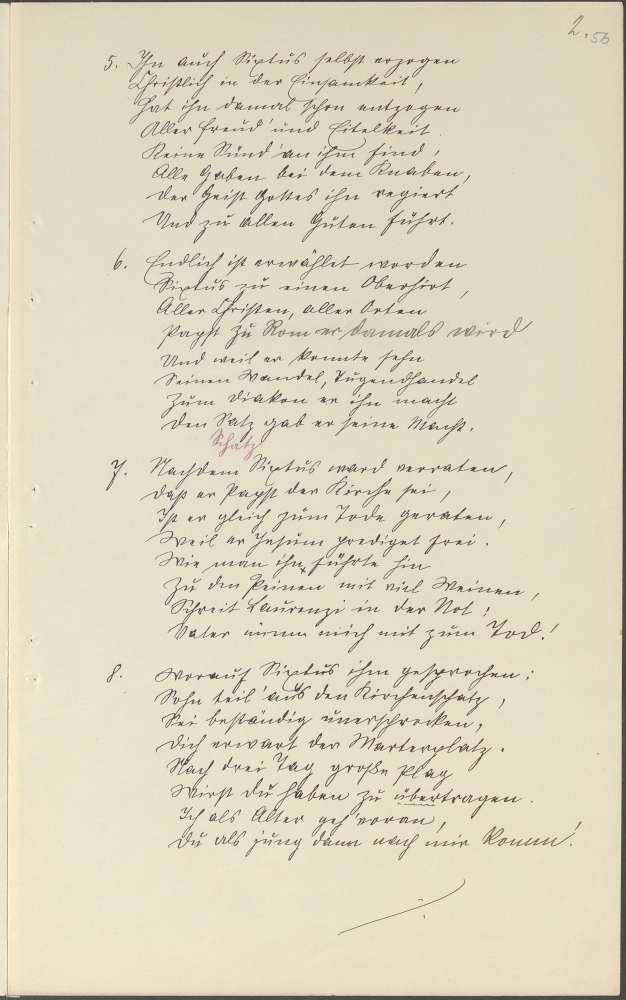 2. 56
5. Ihn auch Sixtus selbst erzogen
Christlich in der Einsamkeit,
Hat ihn damal schon entzogen
Aller Freud' und Eitelkeit.
Keine Sünd' an ihm find',
Alle Gaben bei dem Knaben,
Der Geist Gottes ihn regiert
Und zu allen Guten führt.
6. Endlich ist erwählet worden
Sixtus zu einen Oberhirt,
Aller Christen, aller Orten
Papst zu Rom er damals wird
Und weil er konnte sehn
Seinen Wandel, Tugendhandel
Zum Diakon er ihn macht
Den Satz gab er seine Macht.
Schatz
7. Nachdem Sixtus ward verraten,
Daß er Papst der Kirche sei,
Ist er gleich zum Tode geraten,
Weil er Jesum prediget frei.
Wie man ihn führte hin
Zu den Peinen mit viel Weinen,
Schreit Laurenzi in der Not:
Vater nimm mich mit zum Tod!
8. Worauf Sixtus ihm gesprochen:
Sohn teil' aus den Kirchenschatz,
Sei beständig unerschrocken,
Dich erwart der Marterplatz.
Nach drei Tag große Plag
Wirst du haben zu übertragen.
Ich als Alter geh' voran,
Du als jung dann nach mir komm!